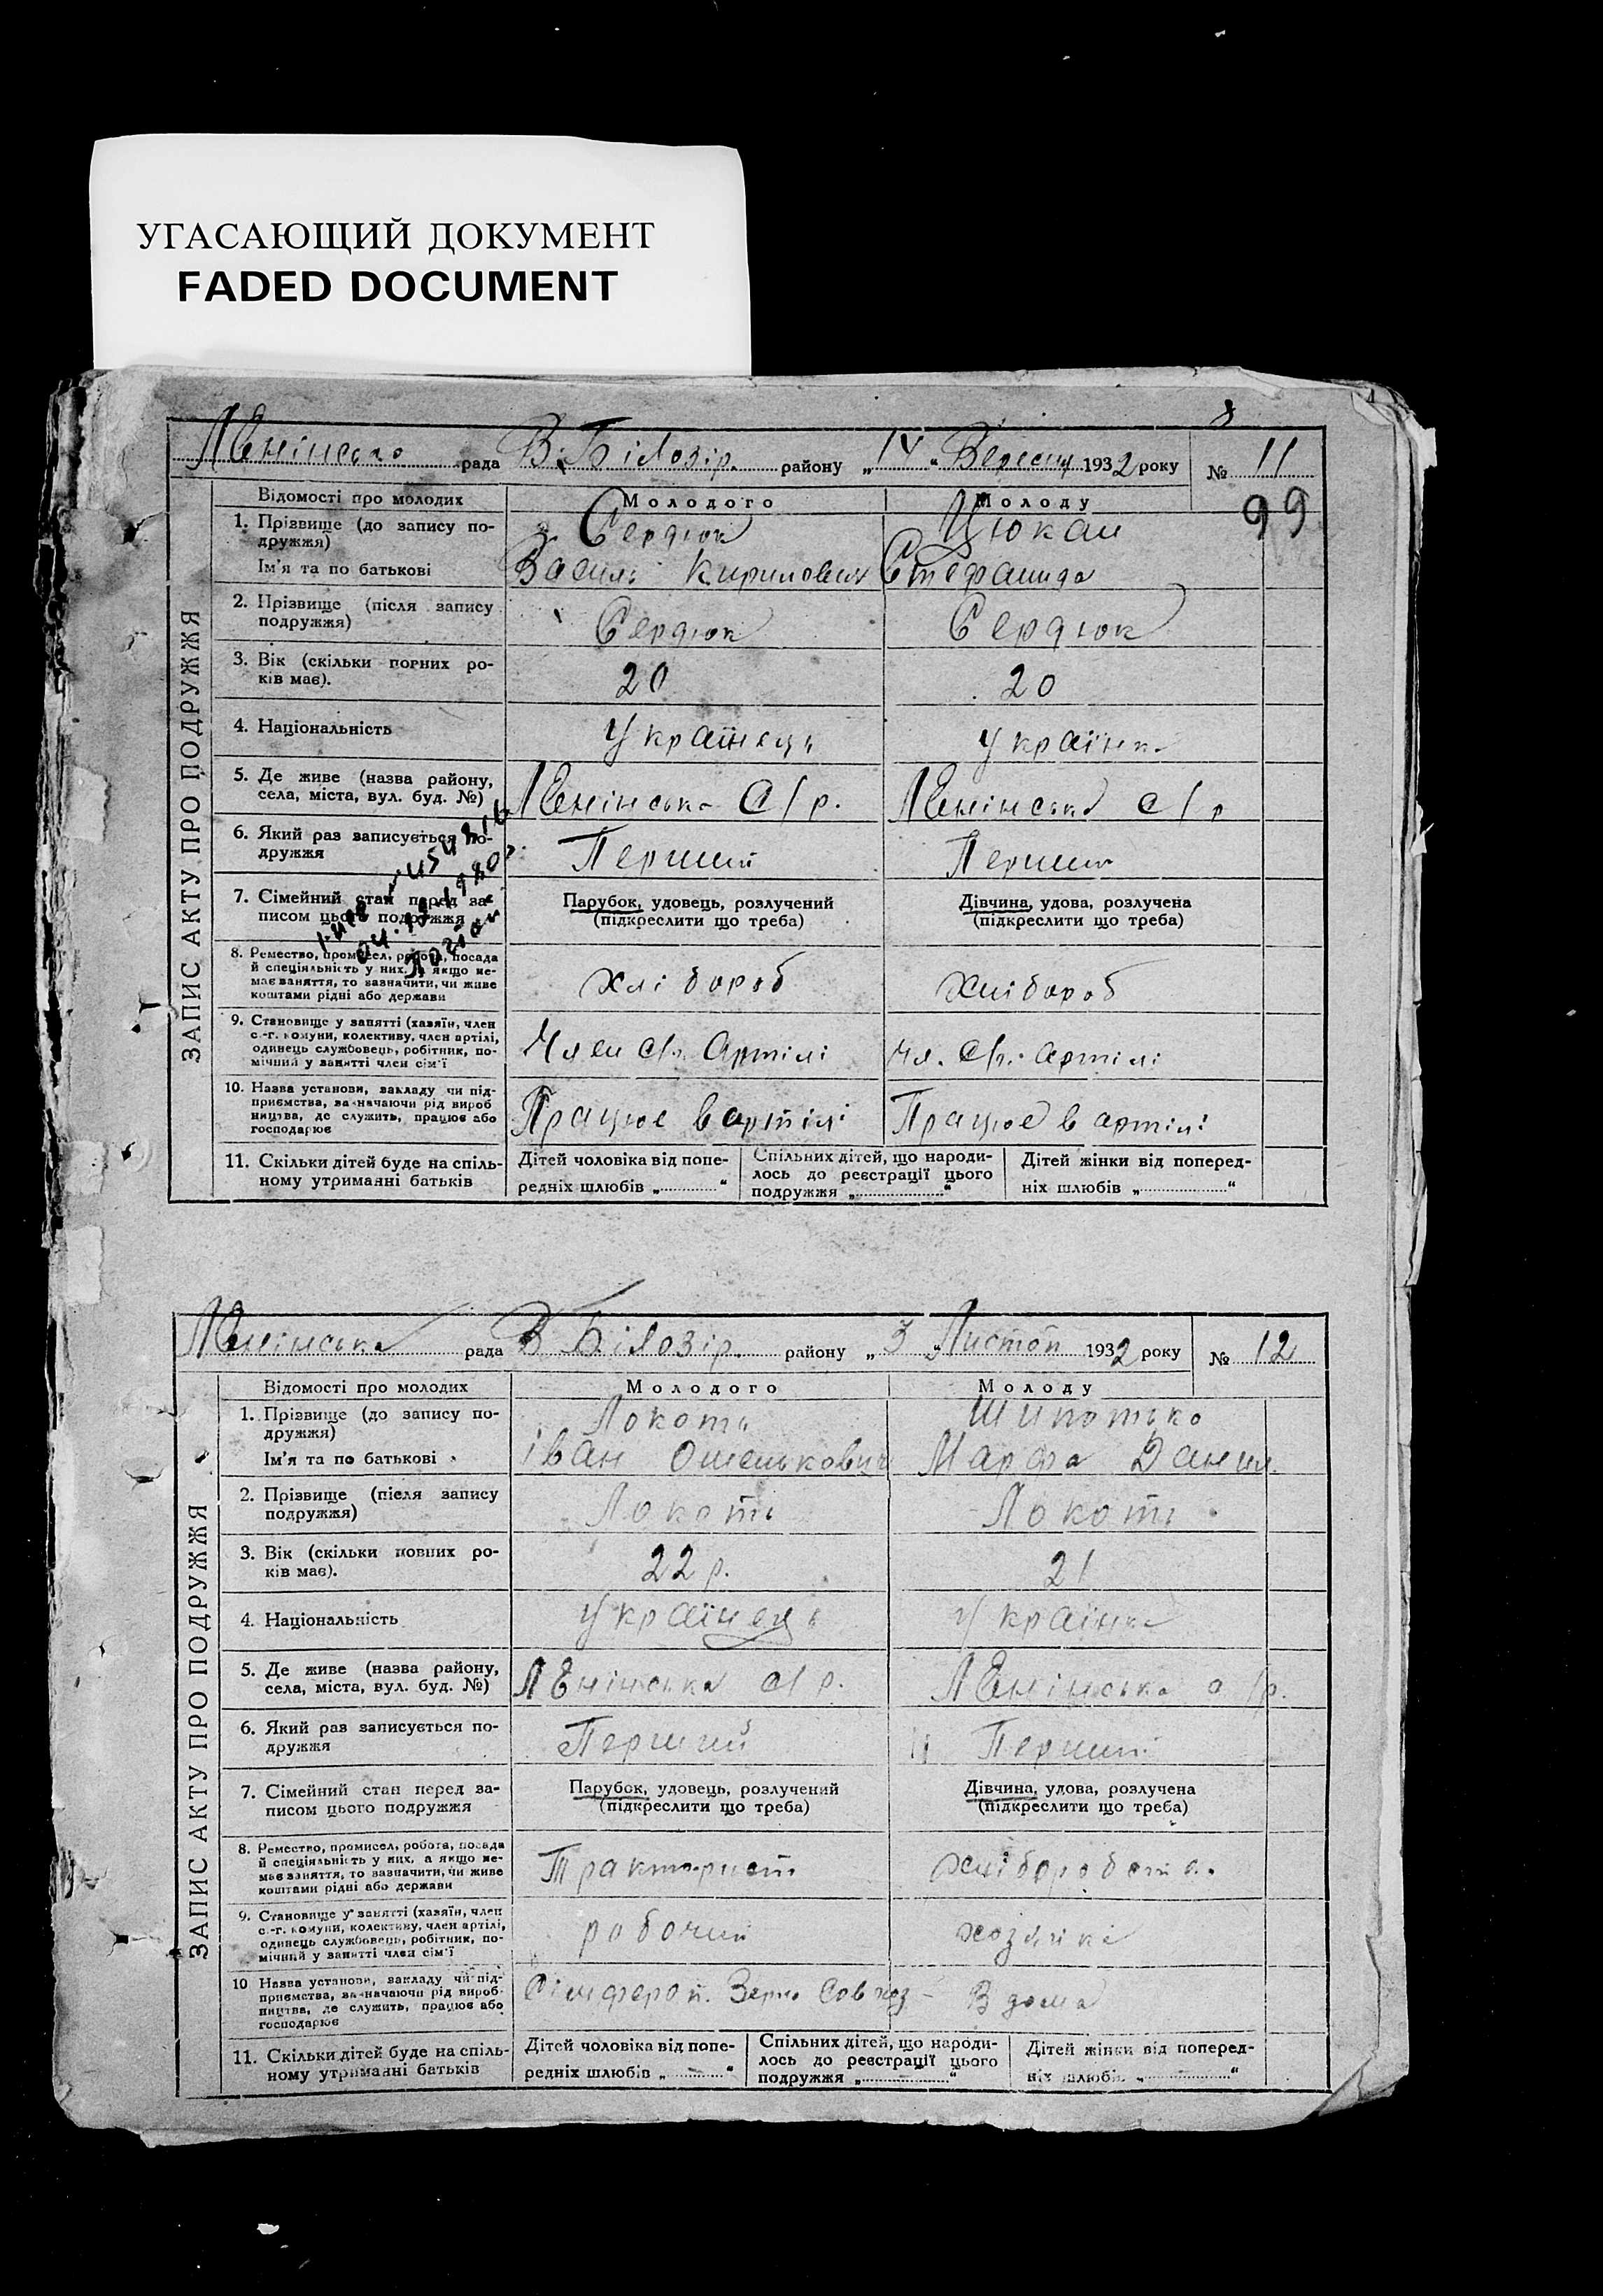 УГАСАЮЩИЙ ДОКУМЕНТ
FADED DOCUMENT
8
Ленінська рада В. Білозір. району „14“ Вересня 1932 року № 11
99
ЗАПИС АКТУ ПРО ПОДРУЖЖЯ
Відомості про молодих
Молодого
Молоду
1. Прізвище (до запису по-
дружжя)
Сердюк
Цюкан
Ім'я та по батькові
Василь Кирилович
Стефанида
2. Прізвище (після запису
подружжя)
Сердюк
Сердюк
3. Вік (скільки порних ро-
ків має).
20
20
4. Національність
Українець
Українка
5. Де живе (назва району,
села, міста, вул. буд. №)
Ленінська С/р.
Ленінська с/р
6. Який раз записується по-
дружжя
Перший
Перший
7. Сімейний стан перед за-
писом цього подружжя
Парубок, удовець, розлучений
(підкреслити що треба)
Дівчина, удова, розлучена
(підкреслити що треба)
8. Ремество, промисел, робота, посада
й спеціяльність у них, а якщо не-
має заняття, то зазначити, чи живе
коштами рідні або держави
хлібороб
хлібороб
9. Становище у занятті (хазяїн, член
с.-г. комуни, колективу, член артілі,
одинець службовець, робітник, по-
мічний у занятті член сім'ї
Член с/г. Артілі
чл. с/г. артілі
10. Назва установи, закладу чи під-
приємства, зазначаючи рід вироб
ництва, де служить, працює або
господарює
Працює в артілі
Працює в артілі
11. Скільки дітей буде на спіль-
ному утриманні батьків
Дітей чоловіка від попе-
редніх шлюбів „ “
Спільних дітей, що народи-
лось до реєстрації цього
подружжя „ “
Дітей жінки від поперед-
ніх шлюбів „ “
Ленінська рада В Білозір. району „3“ Листоп 1932 року № 12
ЗАПИС АКТУ ПРО ПОДРУЖЖЯ
Відомості про молодих
Молодого
Молоду
1. Прізвище (до запису по-
дружжя)
Локоть
Шипотько
Ім'я та по батькові
Іван Омелькович
Марфа Данил.
2. Прізвище (після запису
подружжя)
Локоть
Локоть
3. Вік (скільки повних ро-
ків має).
22 р.
21
4. Національність
Українець
Українка
5. Де живе (назва району,
села, міста, вул. буд. №)
Ленінська с/р.
Ленінська с/р.
6. Який раз записується по-
дружжя
Перший
Перший
7. Сімейний стан перед за-
писом цього подружжя
Парубок, удовець, розлучений
(підкреслити що треба)
Дівчина, удова, розлучена
(підкреслити що треба)
8. Ремество, промисел, робота, посада
й спеціяльність у них, а якщо не-
має заняття, то зазначити, чи живе
коштами рідні або держави
Тракторист
9. Становище у занятті (хазяїн, член
с.-г. комуни, колективу, член артілі,
одинець службовець, робітник, по-
мічний у занятті член сім'ї
робочий
хозяйка
10 Назва установи, закладу чи під-
приємства, зазначаючи рід вироб-
ництва, де служить, працює або
господарює
Сімфероп. Зерно Совхоз
В дома
11. Скільки дітей буде на спіль-
ному утриманні батьків
Дітей чоловіка від попе-
редніх шлюбів „ “
Спільних дітей, що народи-
лось до реєстрації цього
подружжя „ “
Дітей жінки від поперед-
ніх шлюбів „ “